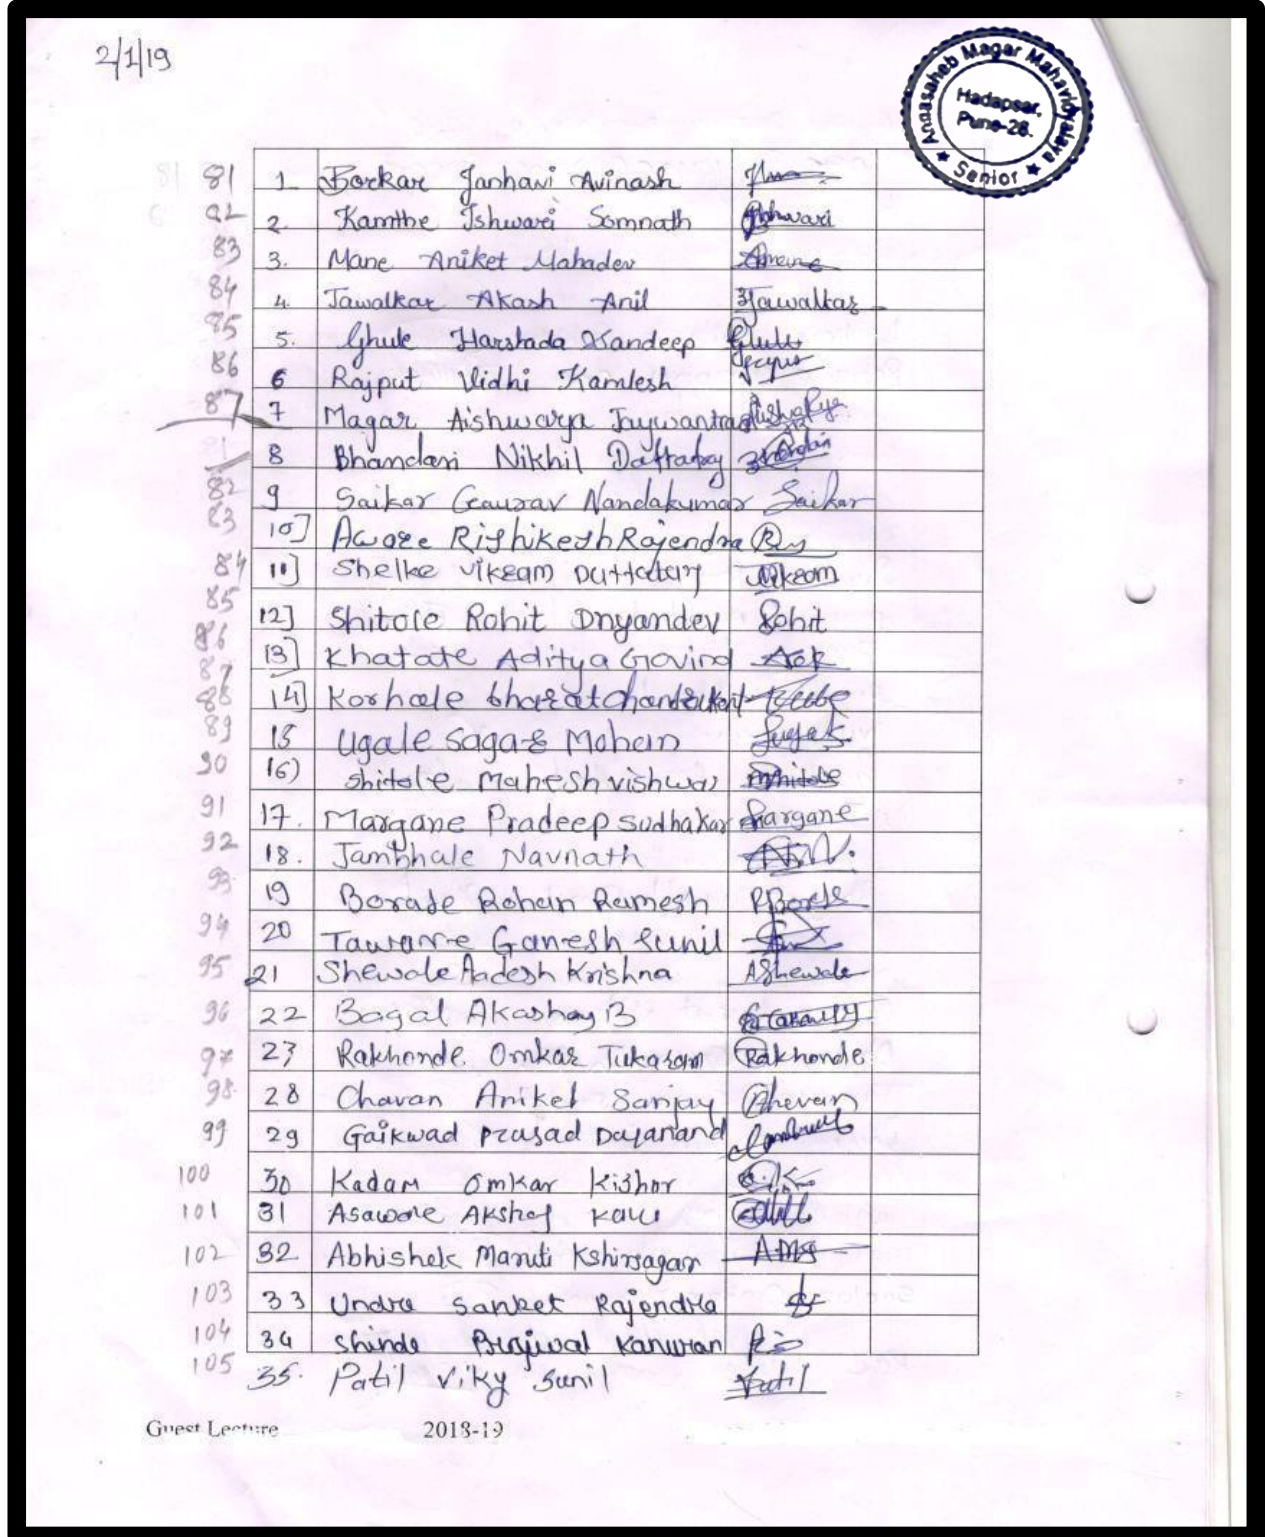 2/1/19
Annasaheb Magar Mahavidyalaya
Hadapsar,
Pune-28.
★ Senior ★
81 1 Borkar Janhavi Avinash
82 2. Kamthe Ishwari Somnath Ishwari
83 3. Mane Aniket Mahadev Amane
84 4. Jawalkar Akash Anil Jawalkar
85 5. Ghule Harshada Sandeep Ghule
86 6 Rajput Vidhi Kamlesh
87 7 Magar Aishwarya Jaywantrao Aishwarya
81 8 Bhandari Nikhil Dattatray
82 9 Saikar Gaurav Nandakumar Saikar
83 10] Aware Rishikesh Rajendra
84 11] Shelke Vikram Dattatray Vikram
85 12] Shitole Rohit Dnyandev Rohit
86 13] Khatate Aditya Govind
87 14] Korhale bharat Chandrakant
88
89 15 Ugale Sagar Mohan
90 16) Shitole Mahesh vishwas Mshitole
91 17. Margane Pradeep Sudhakar Margane
92 18. Jambhale Navnath
93 19 Borate Rohan Ramesh RBorate
94 20 Taware Ganesh Sunil
95 21 Shewale Aadesh Krishna AShewale
96 22 Bagal Akashay B
97 27 Rakhonde Omkar Tukaram Rakhonde
98 28 Chavan Aniket Sanjay Chavan
99 29 Gaikwad Prasad Dayanand
100 30 Kadam Omkar Kishor
101 31 Asawale Akshay
102 32 Abhishek Maruti Kshirsagar AMK
103 33 Undre Sanket Rajendra
104 34 Shinde Prajwal
105 35. Patil Viky Sunil Patil
Guest Lecture 2018-19